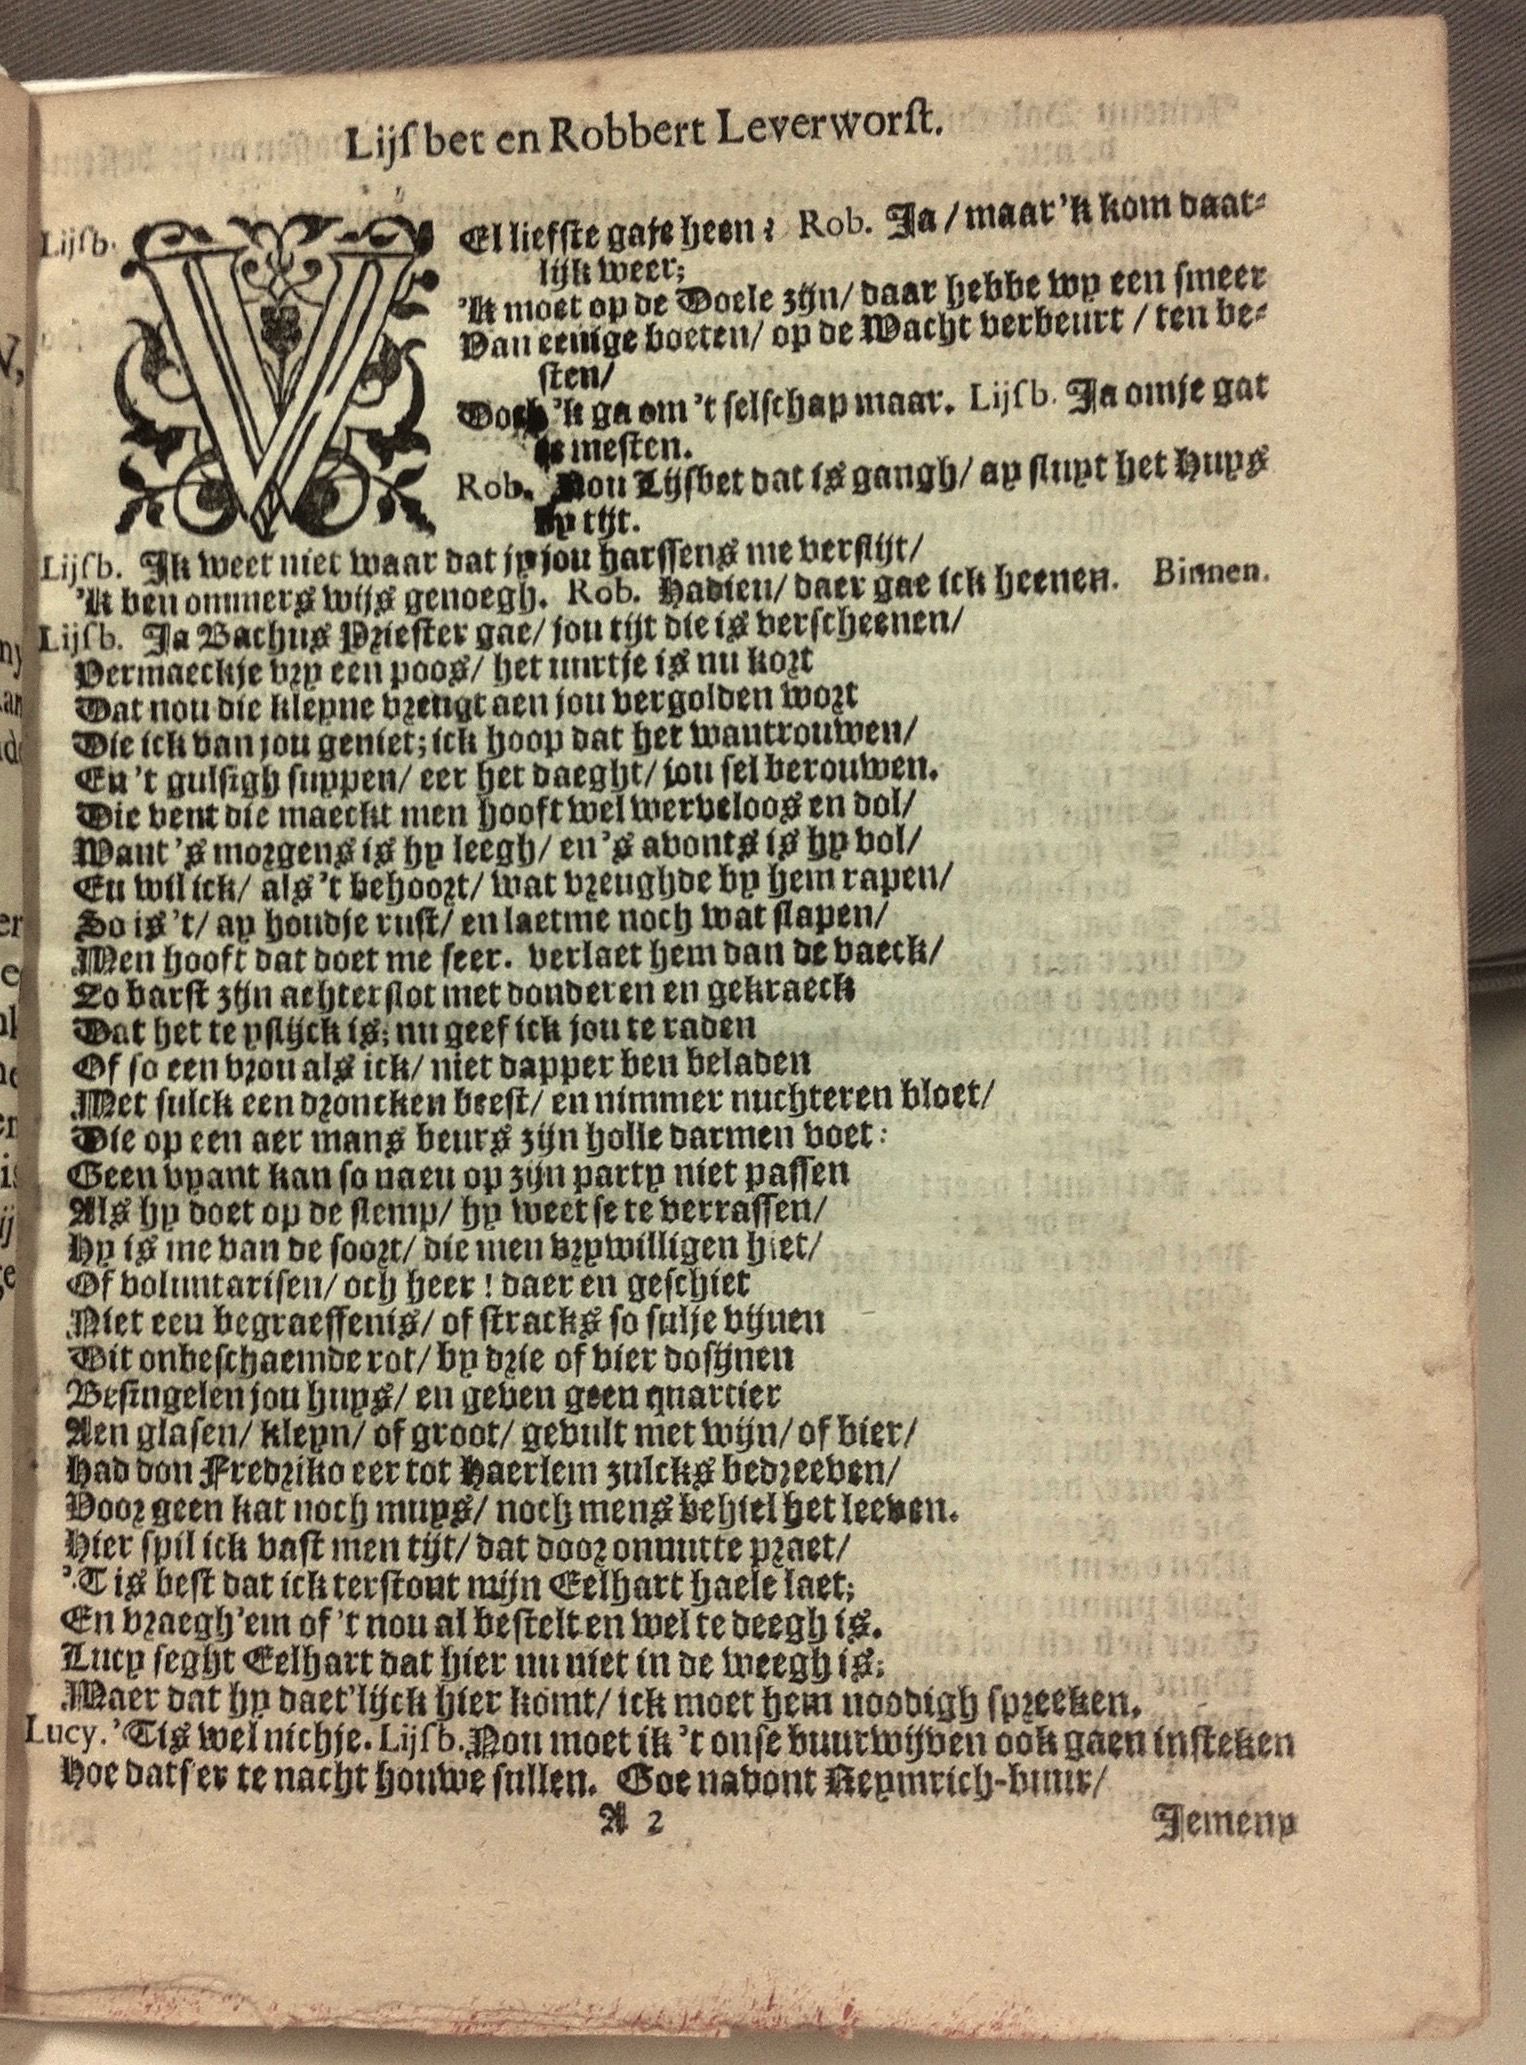 Lijſbet en Robbert Leverworſt.
Lijſb. VEl liefſte gaje heen? Rob. Ja / maar 'k kom daat-
lijk weer;
'k moet op de Doele zijn / daar hebbe wy een ſmeer
Van eenige boeten / op de Wacht verbeurt / ten be-
ſten /
Doch 'k ga om 't ſelſchap maar. Lijſb. Ja om je gat
te meſten.
Rob. Nou Lijsbet dat is gangh / ay ſluyt het huys
by tijt.
Lijſb. Ik weet niet waar dat jy jou harſſens me verſlijt /
'k ben ommers wijs genoegh. Rob. Hadieu / daer gae ick heenen. Binnen.
Lijſb. Ja Bachus Prieſter gae / jou tijt die is verſcheenen /
Vermaeckje vry een poos / het uurtje is nu kort
Dat nou die kleyne vreugt aen jou vergolden wort
Die ick van jou geniet; ick hoop dat het wantrouwen /
En 't gulſigh ſuypen / eer het daeght / jou ſel berouwen.
Die vent die maeckt men hooft wel werveloos en dol /
Want 's morgens is hy leegh / en 's avonts is hy vol /
En wil ick / als 't behoort / wat vreughde by hem rapen /
So is 't / ay houdje ruſt / en laetme noch wat ſlapen /
Men hooft dat doet me ſeer. verlaet hem dan de vaeck /
So barſt zijn achterſlot met donderen en gekraeck
Dat het te yſlijck is; nu geef ick jou te raden
Of ſo een vrou als ick / niet dapper ben beladen
Met ſulck een droncken beeſt / en nimmer nuchteren bloet /
Die op een aer mans beurs zijn holle darmen voet:
Geen vyant kan ſo naeu op zijn party niet paſſen
Als hy doet op de ſlemp / hy weet ſe te verraſſen /
Hy is me van de ſoort / die men vrywilligen hiet /
Of voluntariſen / och heer! daer en geſchiet
Niet een begraeffenis / of ſtracks ſo ſulje vijnen
Dit onbeſchaemde rot / by drie of vier doſijnen
Beſingelen jou huys / en geven geen quartier
Aen glaſen / kleyn / of groot / gevult met wijn / of bier /
Had don Fredriko eer tot Haerlem zulcks bedreeven /
Voor geen kat noch muys / noch mens behiel het leeven.
Hier ſpil ick vaſt men tijt / dat door onnutte praet /
'T is beſt dat ick terſtont mijn Eelhart haele laet;
En vraegh 'em of 't nou al beſtelt en wel te deegh is.
Lucy ſeght Eelhart dat hier nu niet in de weegh is;
Maer dat hy daet'lijck hier komt / ick moet hem noodigh ſpreeken.
Lucy. 'Tis wel nichje. Lijſb. Nou moet ik 't onſe buurwijven ook gaen inſteken
Hoe datſ'er te nacht houwe ſullen. Goe navont Reymrich-buur /
A 2 Jemeny